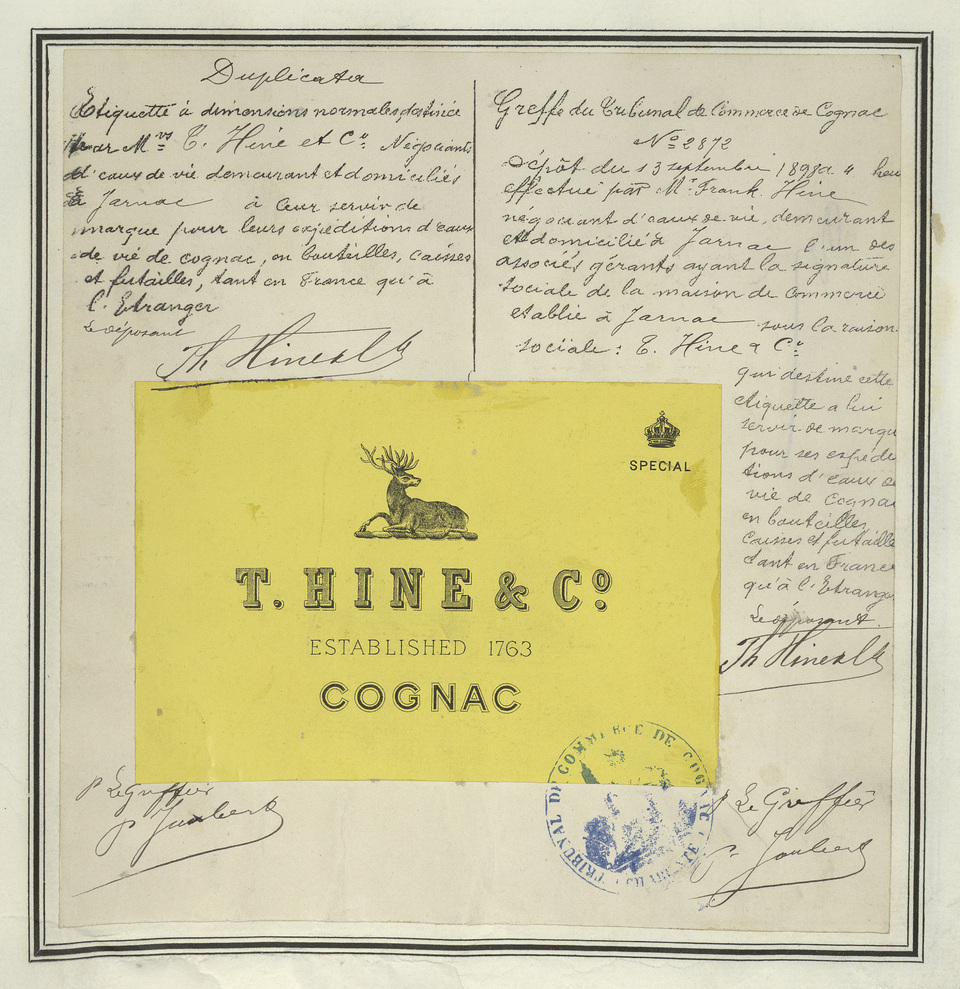 Duplicata
Etiquette à dimensions normales destinée
par Mrs T. Hine et Co. Négociants
d'eaux de vie demeurant et domiciliés
à Jarnac à leur servir de
marque pour leurs expéditions d'eaux
de vie de cognac, en bouteilles, caisses
et futailles, tant en France qu'à
l'Etranger
Le déposant
Th Hine & Co
Greffe du Tribunal de Commerce de Cognac
No 2872
Dépôt du 13 septembre 1898 a 4 heu
effectué par Mr. Frank. Hine
négociant d'eaux de vie, demeurant
et domicilié à Jarnac l'un des
associés gérants ayant la signature
sociale de la maison de Commerce
etablie à Jarnac sous la raison
sociale: T. Hine & Co.
qui destine cette
étiquette a lui
servir de marque
pour ses expédi
tions d'eaux de
vie de Cognac
en bouteilles,
caisses et futailles
tant en France
qu'à l'Etranger
Le déposant.
Th Hine & Co
SPECIAL
T. HINE & Co
ESTABLISHED 1763
COGNAC
TRIBUNAL DE COMMERCE DE COGNAC
P Le Greffier
P. Joubert
P Le Greffier
P. Joubert